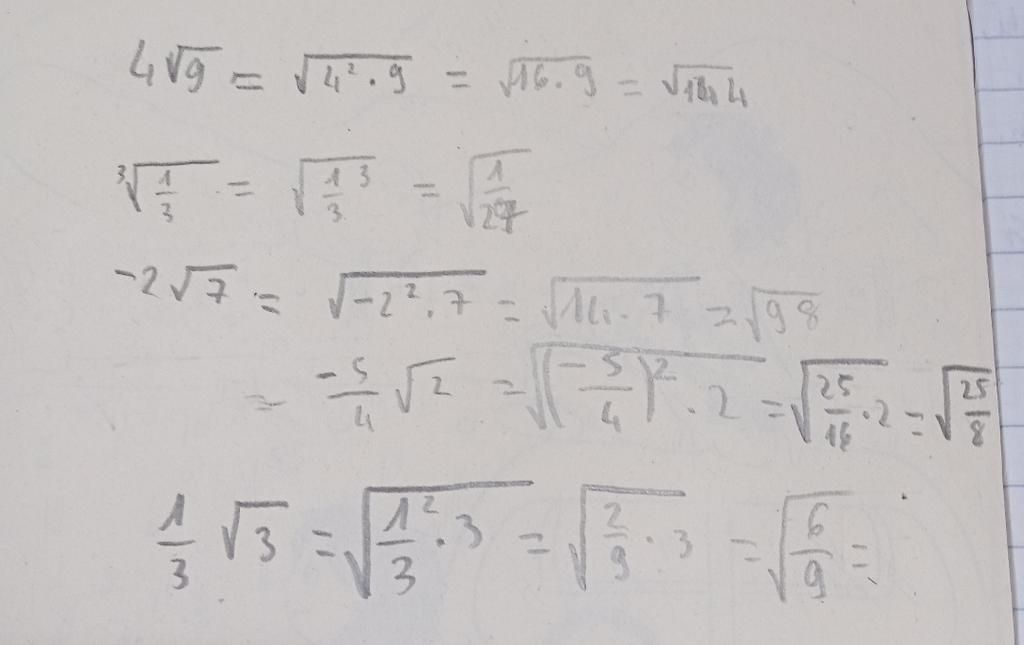 4√9 = √(4² · 9) = √(16 · 9) = √144
³√(1/3) = √(1/3 ³) = √(1/27)
-2√7 = √(-2² · 7) = √(14 · 7) = √98
= -5/4 √2 = √((-5/4)² · 2) = √(25/16 · 2) = √(25/8)
1/3 √3 = √(1²/3 · 3) = √(2/9 · 3) = √(6/9) =